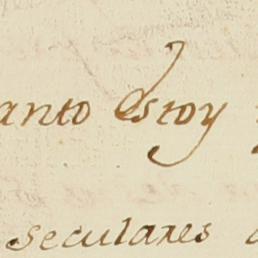 anto estoy
seculares